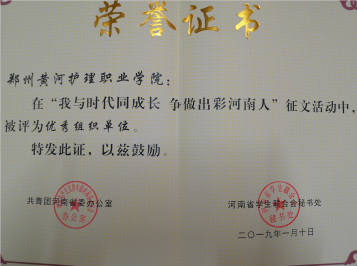 荣誉证书
郑州黄河护理职业学院：
在“我与时代同成长 争做出彩河南人”征文活动中，
被评为优秀组织单位。
特发此证，以兹鼓励。
共青团河南省委办公室
河南省学生联合会秘书处
二〇一九年一月十日